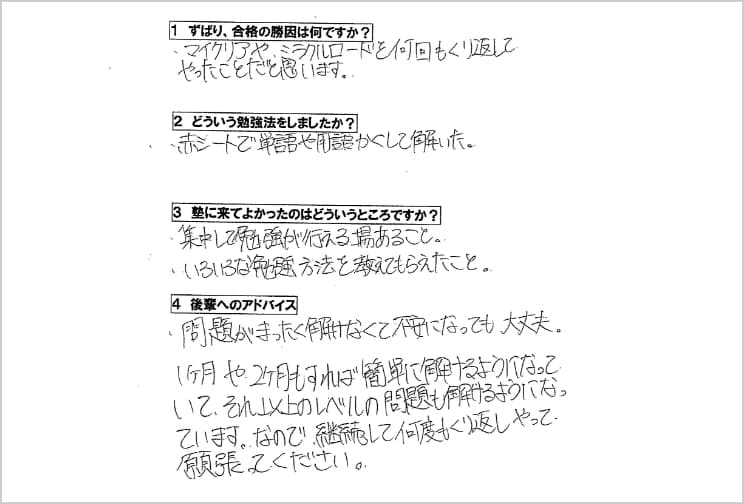 1 ずばり、合格の勝因は何ですか?
・マイクリアや、ミラクルロードを何回もくり返して
やったことだと思います。
2 どういう勉強法をしましたか?
・赤シートで単語や用語かくして解いた。
3 塾に来てよかったのはどういうところですか?
・集中して勉強が行える場あること。
・いろいろな勉強方法を教えてもらえたこと。
4 後輩へのアドバイス
・問題がまったく解けなくて不安になっても大丈夫。
1ヶ月や、2ヶ月もすれば簡単に解けるようになって
いて、それ以上のレベルの問題も解けるようになっ
ています。なので、継続して何度もくり返しやって
願張ってください。